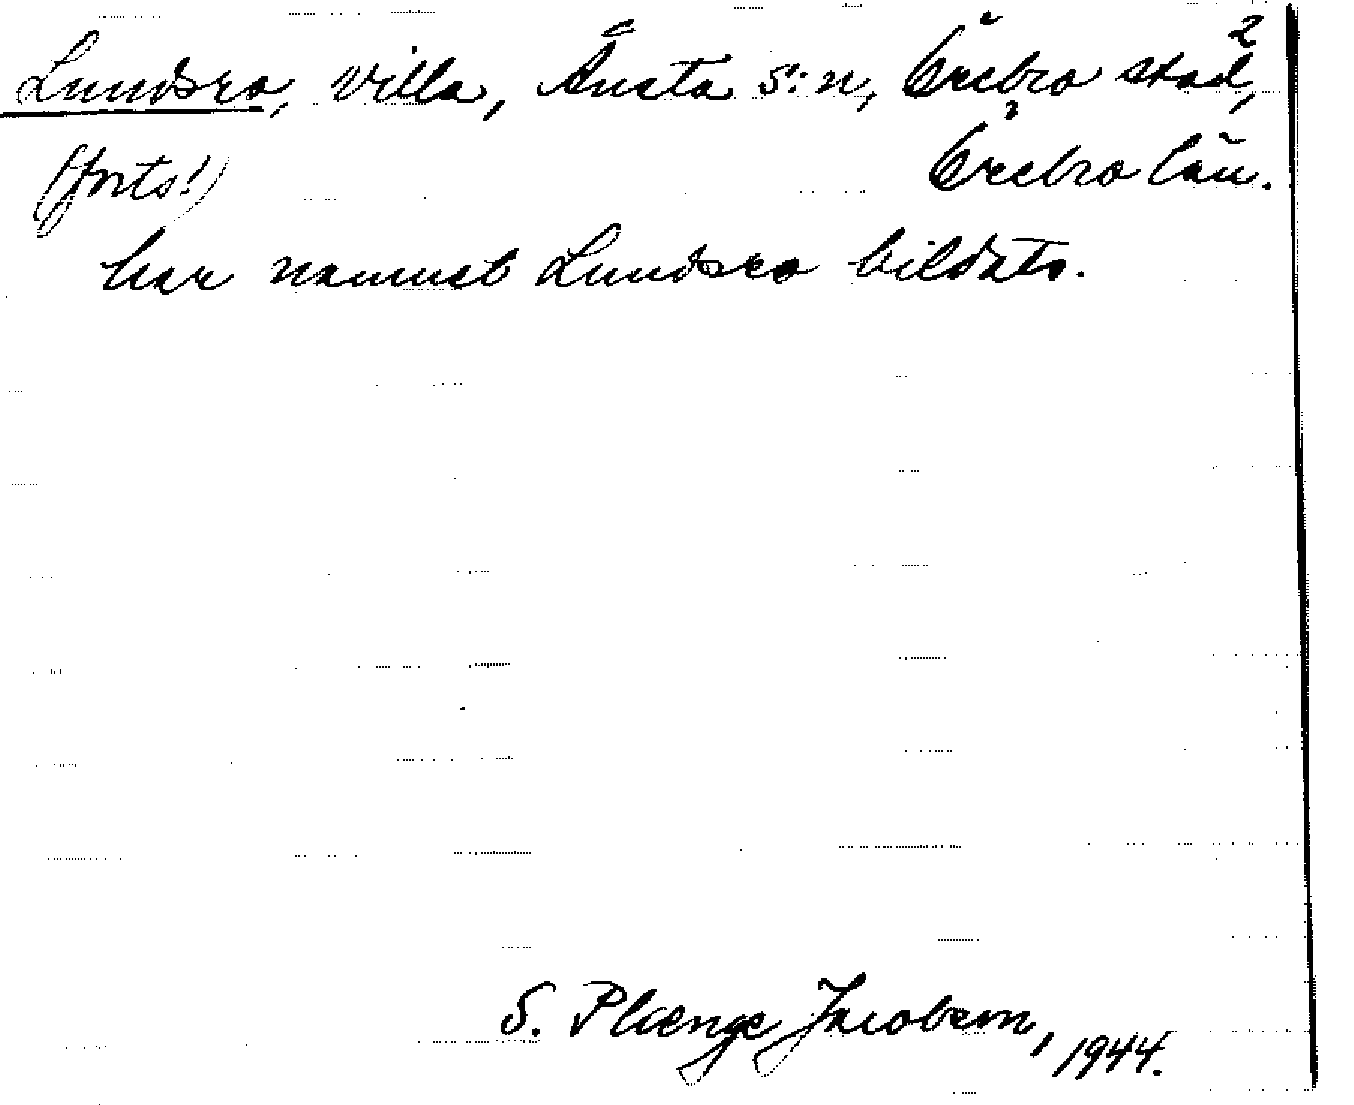 2
Lundsro, villa, Ånsta s:n, Örebro stad,
(forts!) Örebro län.
har namnet Lundsro bildats.
S. Plænge Jacobson, 1944.